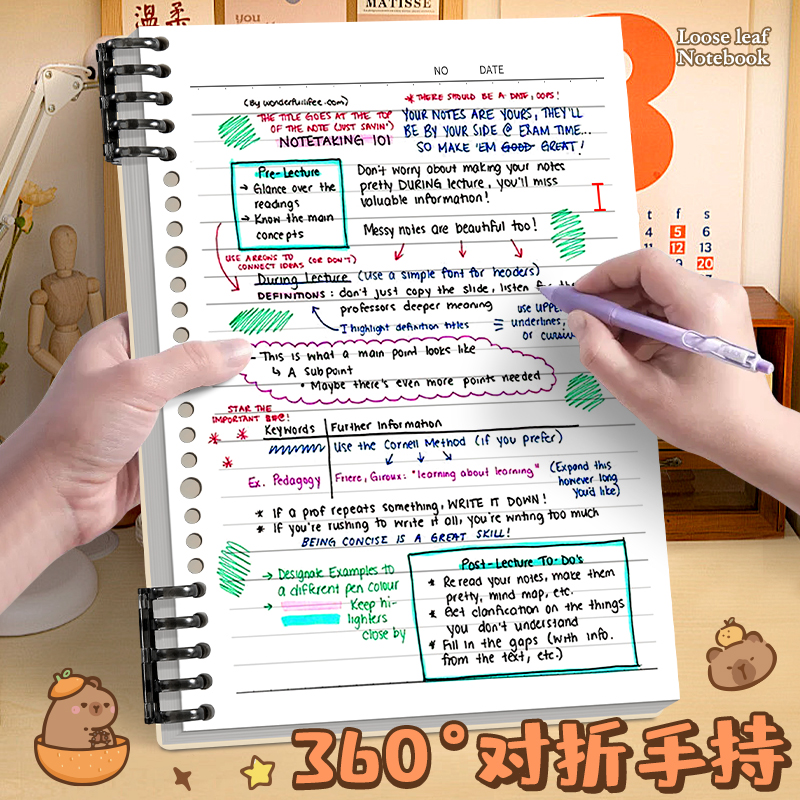 温柔
you
MATISSE
Loose leaf
Notebook
NO DATE
(By wonderfullifee.com)
* THERE SHOULD BE A DATE, OOPS!
THE TITLE GOES AT THE TOP
OF THE NOTE (JUST SAYIN')
NOTETAKING 101
YOUR NOTES ARE YOURS, THEY'LL
BE BY YOUR SIDE @ EXAM TIME...
SO MAKE 'EM GOOD GREAT!
Pre-Lecture
→ Glance over the
readings
→ Know the main
concepts
Don't worry about making your notes
pretty DURING lecture, you'll miss
valuable information!
Messy notes are beautiful too!
USE ARROWS TO
CONNECT IDEAS (OR DON'T)
During Lecture (use a simple font for headers)
DEFINITIONS: don't just copy the slide, listen for the
professors deeper meaning
I highlight definition titles
use UPPE
underlines,
or cursiv
- This is what a main point looks like
↳ A subpoint
• Maybe there's even more points needed
STAR THE
IMPORTANT
Keywords Further Information
Use the Cornell Method (if you prefer)
Ex. Pedagogy Friere, Giroux: "learning about learning"
(Expand this
however long
you'd like)
* If a prof repeats something, WRITE IT DOWN!
* If you're rushing to write it all, you're writing too much
BEING CONCISE IS A GREAT SKILL!
→ Designate Examples to
a different pen colour
→ Keep hi-
lighters
close by
Post-Lecture To-Do's
* Reread your notes, make them
pretty, mind map, etc.
* Get clarification on the things
you don't understand
* Fill in the gaps (with info.
from the text, etc.)
8
t f s
4 5 6
11 12 13
19 20
360°对折手持